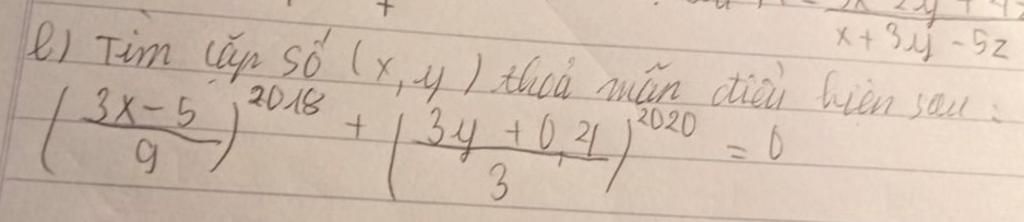 x + 3y - 5z
e) Tìm cặp số (x, y) thoả mãn điều kiện sau:
(\frac{3x-5}{9})^{2018} + (\frac{3y+0,4}{3})^{2020} = 0